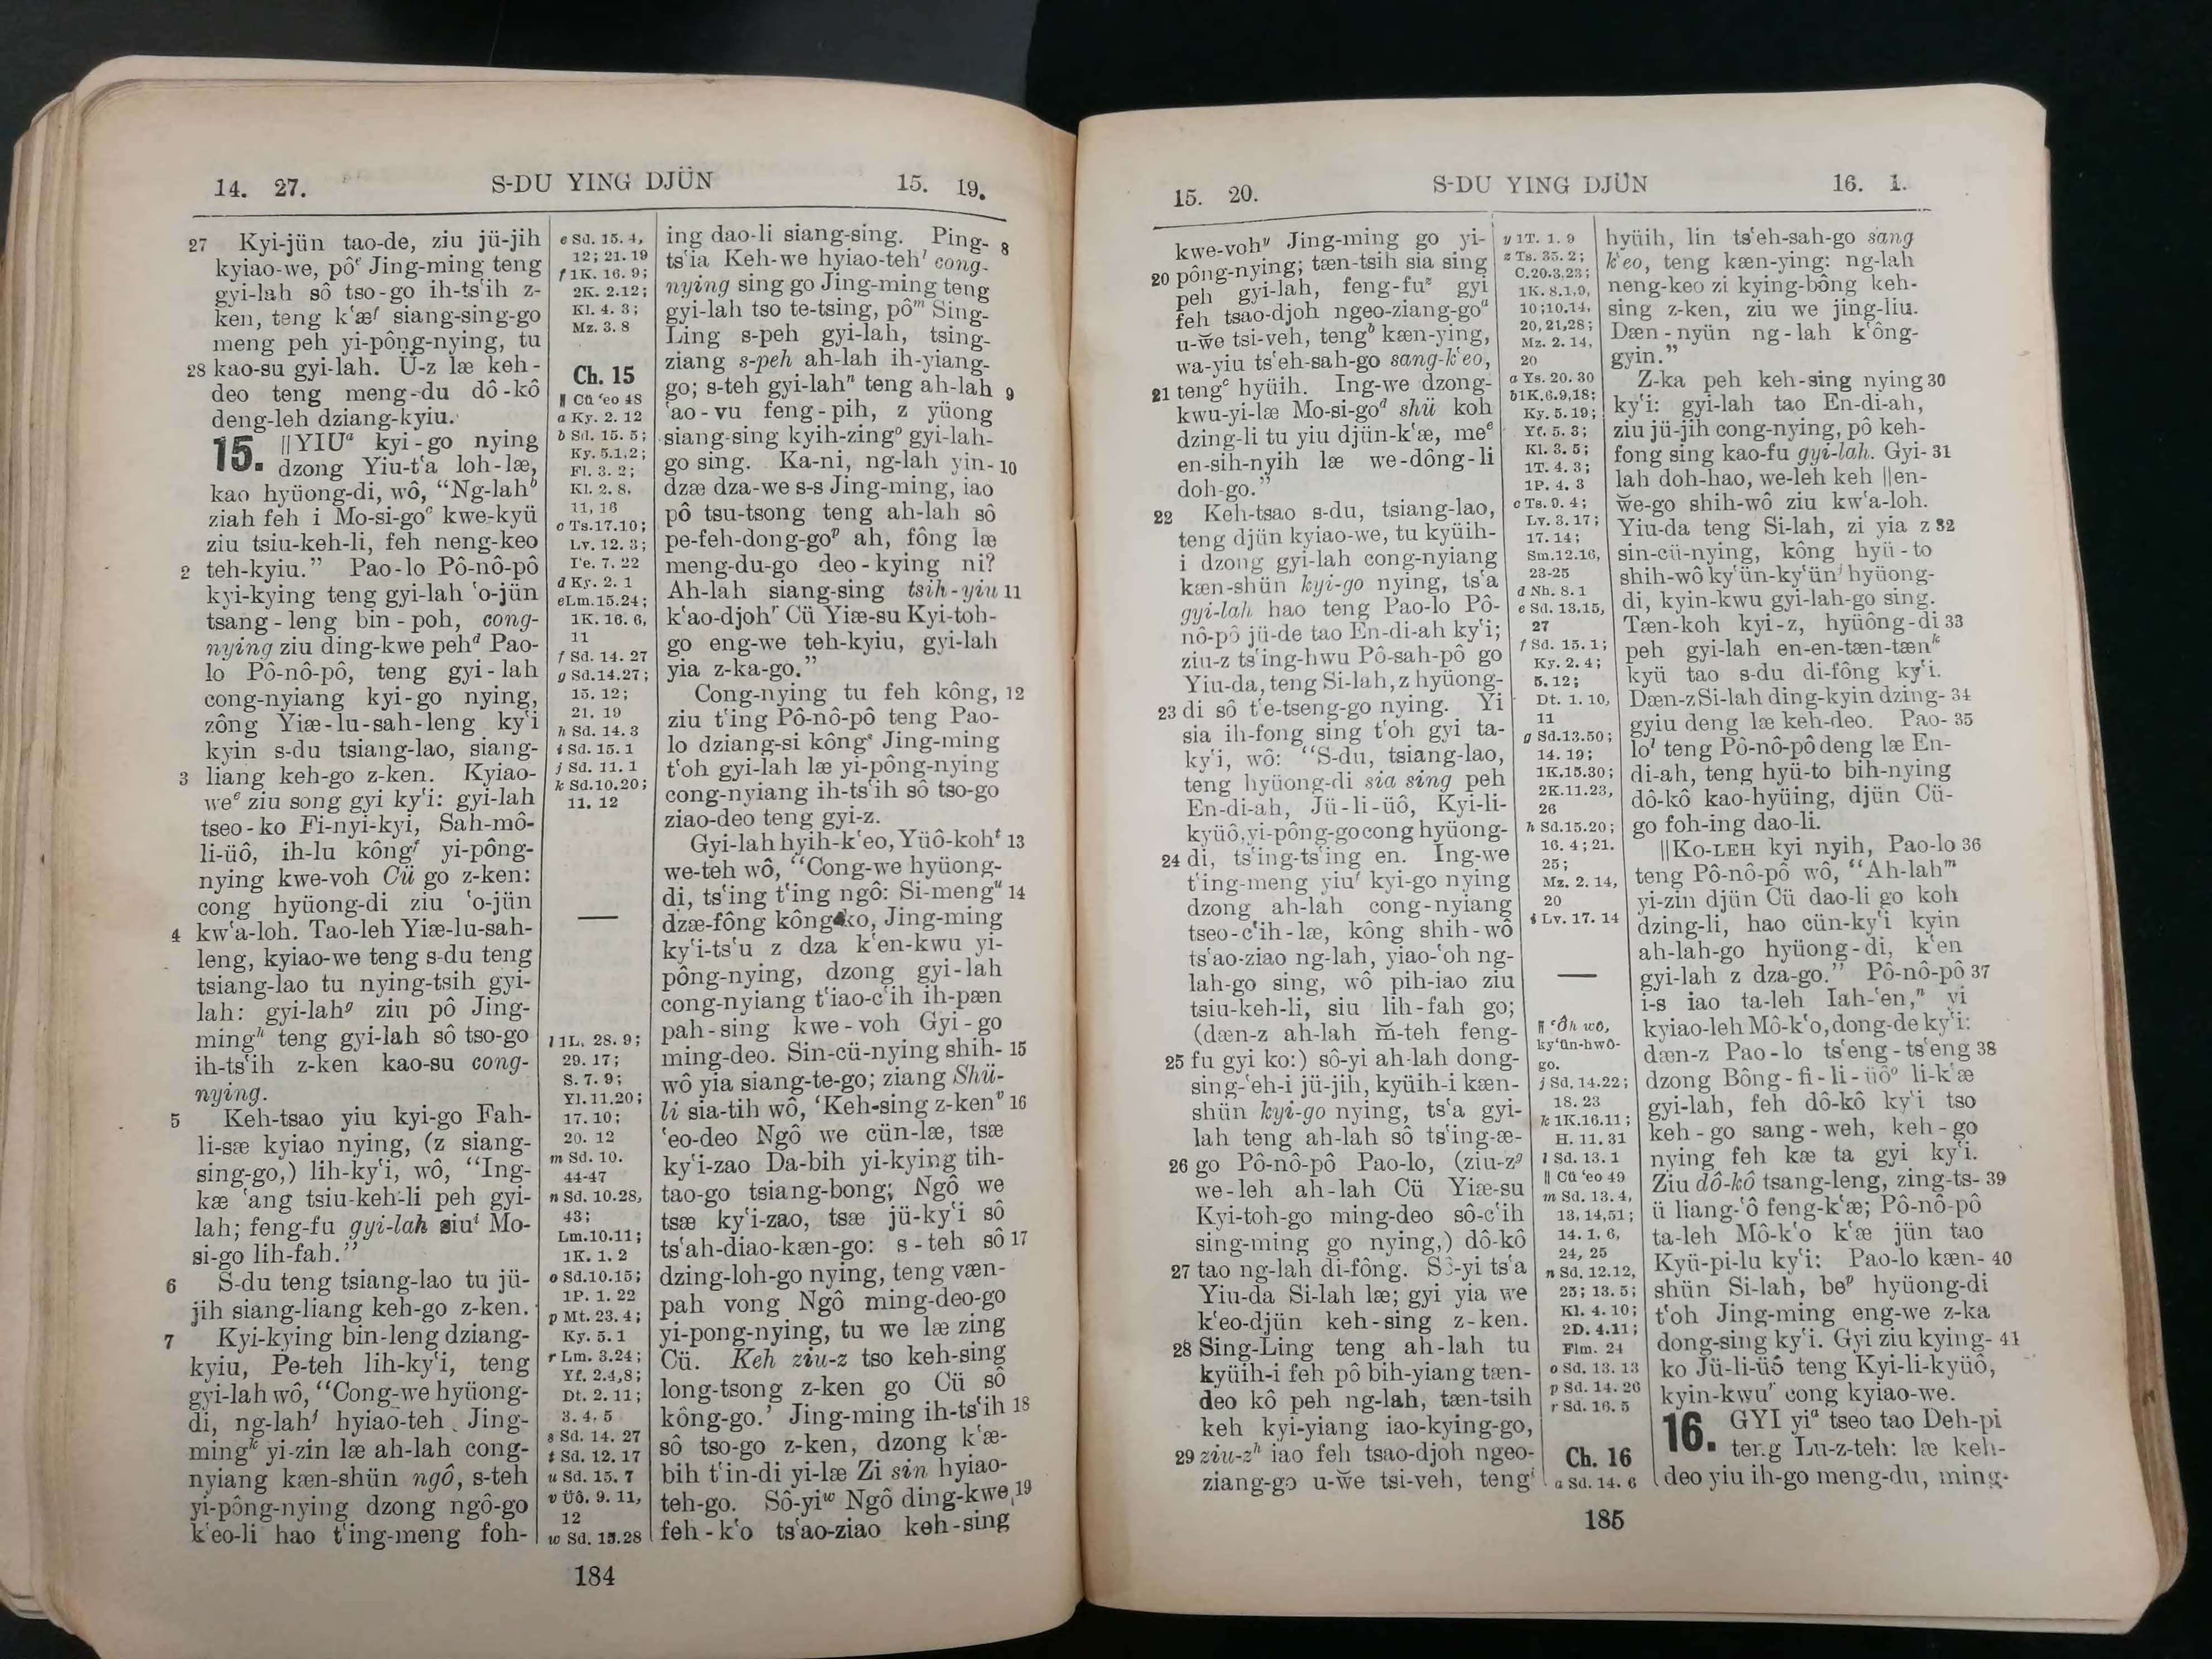 14. 27. S-DU YING DJÜN 15. 19.
27 Kyi-jün tao-de, ziu jü-jih
kyiao-we, pôᵉ Jing-ming teng
gyi-lah sô tso-go ih-ts‘ih z-
ken, teng k‘æᶠ siang-sing-go
meng peh yi-pông-nying, tu
28 kao-su gyi-lah. Ü-z læ keh-
deo teng meng-du dô-kô
deng-leh dziang-kyiu.
15. ||YIUᵃ kyi-go nying
dzong Yiu-t‘a loh-læ,
kao hyüong-di, wô, “Ng-lahᵇ
ziah feh i Mo-si-goᶜ kwe-kyü
ziu tsiu-keh-li, feh neng-keo
2 teh-kyiu.” Pao-lo Pô-nô-pô
kyi-kying teng gyi-lah ‘o-jün
tsang-leng bin-poh, cong-
nying ziu ding-kwe pehᵈ Pao-
lo Pô-nô-pô, teng gyi-lah
cong-nyiang kyi-go nying,
zông Yiæ-lu-sah-leng ky‘i
kyin s-du tsiang-lao, siang-
3 liang keh-go z-ken. Kyiao-
weᵉ ziu song gyi ky‘i: gyi-lah
tseo-ko Fi-nyi-kyi, Sah-mô-
li-üô, ih-lu kôngᶠ yi-pông-
nying kwe-voh Cü go z-ken:
cong hyüong-di ziu ‘o-jün
4 kw‘a-loh. Tao-leh Yiæ-lu-sah-
leng, kyiao-we teng s-du teng
tsiang-lao tu nying-tsih gyi-
lah: gyi-lahᵍ ziu pô Jing-
mingʰ teng gyi-lah sô tso-go
ih-ts‘ih z-ken kao-su cong-
nying.
5 Keh-tsao yiu kyi-go Fah-
li-sæ kyiao nying, (z siang-
sing-go,) lih-ky‘i, wô, “Ing-
kæ ‘ang tsiu-keh-li peh gyi-
lah; feng-fu gyi-lah siuⁱ Mo-
si-go lih-fah.”
6 S-du teng tsiang-lao tu jü-
jih siang-liang keh-go z-ken.
7 Kyi-kying bin-leng dziang-
kyiu, Pe-teh lih-ky‘i, teng
gyi-lah wô, “Cong-we hyüong-
di, ng-lahʲ hyiao-teh Jing-
mingᵏ yi-zin læ ah-lah cong-
nyiang kæn-shün ngô, s-teh
yi-pông-nying dzong ngô-go
k‘eo-li hao t‘ing-meng foh-
e Sd. 15. 4,
12; 21. 19
f 1K. 16. 9;
2K. 2.12;
Kl. 4. 3;
Mz. 3. 8
Ch. 15
|| Cü ‘eo 48
a Ky. 2. 12
b Sd. 15. 5;
Ky. 5.1,2;
Fl. 3. 2;
Kl. 2. 8,
11, 16
c Ts.17.10;
Lv. 12. 3;
I‘e. 7. 22
d Ky. 2. 1
e Lm.15.24;
1K. 16. 6,
11
f Sd. 14. 27
g Sd.14.27;
15. 12;
21. 19
h Sd. 14. 3
i Sd. 15. 1
j Sd. 11. 1
k Sd.10.20;
11. 12
l 1L. 28. 9;
29. 17;
S. 7. 9;
Yl.11.20;
17. 10;
20. 12
m Sd. 10.
44-47
n Sd. 10.28,
43;
Lm.10.11;
1K. 1. 2
o Sd.10.15;
1P. 1. 22
p Mt. 23. 4;
Ky. 5. 1
r Lm. 3.24;
Yf. 2.4,8;
Dt. 2. 11;
3. 4, 5
s Sd. 14. 27
t Sd. 12. 17
u Sd. 15. 7
v Üô. 9. 11,
12
w Sd. 15.28
ing dao-li siang-sing. Ping- 8
ts‘ia Keh-we hyiao-tehˡ cong-
nying sing go Jing-ming teng
gyi-lah tso te-tsing, pôᵐ Sing-
Ling s-peh gyi-lah, tsing-
ziang s-peh ah-lah ih-yiang-
go; s-teh gyi-lahⁿ teng ah-lah 9
‘ao-vu feng-pih, z yüong
siang-sing kyih-zingᵒ gyi-lah-
go sing. Ka-ni, ng-lah yin- 10
dzæ dza-we s-s Jing-ming, iao
pô tsu-tsong teng ah-lah sô
pe-feh-dong-goᵖ ah, fông læ
meng-du-go deo-kying ni?
Ah-lah siang-sing tsih-yiu 11
k‘ao-djohʳ Cü Yiæ-su Kyi-toh-
go eng-we teh-kyiu, gyi-lah
yia z-ka-go.”
Cong-nying tu feh kông, 12
ziu t‘ing Pô-nô-pô teng Pao-
lo dziang-si kôngˢ Jing-ming
t‘oh gyi-lah læ yi-pông-nying
cong-nyiang ih-ts‘ih sô tso-go
ziao-deo teng gyi-z.
Gyi-lah hyih-k‘eo, Yüô-kohᵗ 13
we-teh wô, “Cong-we hyüong-
di, ts‘ing t‘ing ngô: Si-mengᵘ 14
dzæ-fông kông-ko, Jing-ming
ky‘i-ts‘u z dza k‘en-kwu yi-
pông-nying, dzong gyi-lah
cong-nyiang t‘iao-c‘ih ih-pæn
pah-sing kwe-voh Gyi-go
ming-deo. Sin-cü-nying shih- 15
wô yia siang-te-go; ziang Shü-
li sia-tih wô, ‘Keh-sing z-kenᵛ 16
‘eo-deo Ngô we cün-læ, tsæ
ky‘i-zao Da-bih yi-kying tih-
tao-go tsiang-bong; Ngô we
tsæ ky‘i-zao, tsæ jü-ky‘i sô
ts‘ah-diao-kæn-go: s-teh sô 17
dzing-loh-go nying, teng væn-
pah vong Ngô ming-deo-go
yi-pong-nying, tu we læ zing
Cü. Keh ziu-z tso keh-sing
long-tsong z-ken go Cü sô
kông-go.’ Jing-ming ih-ts‘ih 18
sô tso-go z-ken, dzong k‘æ-
bih t‘in-di yi-læ Zi sin hyiao-
teh-go. Sô-yiʷ Ngô ding-kwe, 19
feh-k‘o ts‘ao-ziao keh-sing
184
15. 20. S-DU YING DJÜN 16. 1.
kwe-vohʸ Jing-ming go yi-
20 pông-nying; tæn-tsih sia sing
peh gyi-lah, feng-fuᶻ gyi
feh tsao-djoh ngeo-ziang-goᵃ
u-w̌e tsi-veh, tengᵇ kæn-ying,
wa-yiu ts‘eh-sah-go sang-k‘eo,
21 tengᶜ hyüih. Ing-we dzong-
kwu-yi-læ Mo-si-goᵈ shü koh
dzing-li tu yiu djün-k‘æ, meᵉ
en-sih-nyih læ we-dông-li
doh-go.”
22 Keh-tsao s-du, tsiang-lao,
teng djün kyiao-we, tu kyüih-
i dzong gyi-lah cong-nyiang
kæn-shün kyi-go nying, ts‘a
gyi-lah hao teng Pao-lo Pô-
nô-pô jü-de tao En-di-ah ky‘i;
ziu-z ts‘ing-hwu Pô-sah-pô go
Yiu-da, teng Si-lah, z hyüong-
23 di sô t‘e-tseng-go nying. Yi
sia ih-fong sing t‘oh gyi ta-
ky‘i, wô: “S-du, tsiang-lao,
teng hyüong-di sia sing peh
En-di-ah, Jü-li-üô, Kyi-li-
kyüô, yi-pông-go cong hyüong-
24 di, ts‘ing-ts‘ing en. Ing-we
t‘ing-meng yiuᶠ kyi-go nying
dzong ah-lah cong-nyiang
tseo-c‘ih-læ, kông shih-wô
ts‘ao-ziao ng-lah, yiao-‘oh ng-
lah-go sing, wô pih-iao ziu
tsiu-keh-li, siu lih-fah go;
(dæn-z ah-lah m̌-teh feng-
25 fu gyi ko:) sô-yi ah-lah dong-
sing-‘eh-i jü-jih, kyüih-i kæn-
shün kyi-go nying, ts‘a gyi-
lah teng ah-lah sô ts‘ing-æ-
26 go Pô-nô-pô Pao-lo, (ziu-zᵍ
we-leh ah-lah Cü Yiæ-su
Kyi-toh-go ming-deo sô-c‘ih
sing-ming go nying,) dô-kô
27 tao ng-lah di-fông. Sô-yi ts‘a
Yiu-da Si-lah læ; gyi yia we
k‘eo-djün keh-sing z-ken.
28 Sing-Ling teng ah-lah tu
kyüih-i feh pô bih-yiang tæn-
deo kô peh ng-lah, tæn-tsih
keh kyi-yiang iao-kying-go,
29 ziu-zʰ iao feh tsao-djoh ngeo-
ziang-go u-w̌e tsi-veh, tengⁱ
y 1T. 1. 9
z Ts. 35. 2;
C.20.3,23;
1K. 8.1,9,
10;10.14,
20,21,28;
Mz. 2. 14,
20
a Ys. 20. 30
b 1K.6.9,18;
Ky. 5. 19;
Yf. 5. 3;
Kl. 3. 5;
1T. 4. 3;
1P. 4. 3
c Ts. 9. 4;
Lv. 3. 17;
17. 14;
Sm.12.16,
23-25
d Nh. 8. 1
e Sd. 13.15,
27
f Sd. 15. 1;
Ky. 2. 4;
5. 12;
Dt. 1. 10,
11
g Sd.13.50;
14. 19;
1K.15.30;
2K.11.23,
26
h Sd.15.20;
16. 4; 21.
25;
Mz. 2. 14,
20
i Lv. 17. 14
|| ‘Ôh wô,
ky‘ün-hwô-
go.
j Sd. 14.22;
18. 23
k 1K.16.11;
H. 11. 31
l Sd. 13. 1
|| Cü ‘eo 49
m Sd. 13. 4,
13, 14, 51;
14. 1, 6,
24, 25
n Sd. 12.12,
25; 13. 5;
Kl. 4. 10;
2D. 4.11;
Flm. 24
o Sd. 13. 13
p Sd. 14. 26
r Sd. 16. 5
Ch. 16
a Sd. 14. 6
hyüih, lin ts‘eh-sah-go sang
k‘eo, teng kæn-ying: ng-lah
neng-keo zi kying-bông keh-
sing z-ken, ziu we jing-liu.
Dæn-nyün ng-lah k‘ông-
gyin.”
Z-ka peh keh-sing nying 30
ky‘i: gyi-lah tao En-di-ah,
ziu jü-jih cong-nying, pô keh-
fong sing kao-fu gyi-lah. Gyi- 31
lah doh-hao, we-leh keh ||en-
w̌e-go shih-wô ziu kw‘a-loh.
Yiu-da teng Si-lah, zi yia z 32
sin-cü-nying, kông hyü-to
shih-wô ky‘ün-ky‘ünʲ hyüong-
di, kyin-kwu gyi-lah-go sing.
Tæn-koh kyi-z, hyüông-di 33
peh gyi-lah en-en-tæn-tænᵏ
kyü tao s-du di-fông ky‘i.
Dæn-z Si-lah ding-kyin dzing- 34
gyiu deng læ keh-deo. Pao- 35
loˡ teng Pô-nô-pô deng læ En-
di-ah, teng hyü-to bih-nying
dô-kô kao-hyüing, djün Cü-
go foh-ing dao-li.
||KO-LEH kyi nyih, Pao-lo 36
teng Pô-nô-pô wô, “Ah-lahᵐ
yi-zin djün Cü dao-li go koh
dzing-li, hao cün-ky‘i kyin
ah-lah-go hyüong-di, k‘en
gyi-lah z dza-go.” Pô-nô-pô 37
i-s iao ta-leh Iah-‘en,ⁿ yi
kyiao-leh Mô-k‘o, dong-de ky‘i:
dæn-z Pao-lo ts‘eng-ts‘eng 38
dzong Bông-fi-li-üôᵒ li-k‘æ
gyi-lah, feh dô-kô ky‘i tso
keh-go sang-weh, keh-go
nying feh kæ ta gyi ky‘i.
Ziu dô-kô tsang-leng, zing-ts- 39
ü liang-‘ô feng-k‘æ; Pô-nô-pô
ta-leh Mô-k‘o k‘æ jün tao
Kyü-pi-lu ky‘i: Pao-lo kæn- 40
shün Si-lah, beᵖ hyüong-di
t‘oh Jing-ming eng-we z-ka
dong-sing ky‘i. Gyi ziu kying- 41
ko Jü-li-üô teng Kyi-li-kyüô,
kyin-kwuʳ cong kyiao-we.
16. GYI yiᵃ tseo tao Deh-pi
teng Lu-z-teh: læ keh-
deo yiu ih-go meng-du, ming-
185